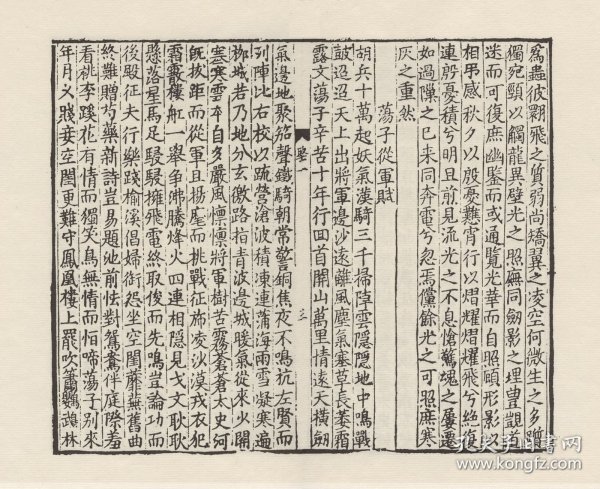 為蟲彼翾飛之質弱尚矯翼之凌空何微生之多躓
獨宛頸以觸籠異壁光之照廡同劒影之埋豐覬前
迷而可復庶幽鑒而或通覽光華而自照顧形影以
相弔感秋夕以殷憂歎宵行以熠燿熠燿飛兮絕復
連殷憂積兮明且煎見流光之不息愴驚魂之屢遷
如過隟之已来同奔電兮忽焉儻餘光之可照庶寒
灰之重然
蕩子從軍賦
胡兵十萬起妖氛漢騎三千掃陣雲隱隱地中鳴戰
鼓迢迢天上出將軍邊沙遠離風塵氣塞草長萎霜
露文蕩子辛苦十年行回首關山萬里情遠天橫劒
氣邊地聚笳聲鐵騎朝常警銅焦夜不鳴抗左賢而
列陣比右校以疏營滄波積凍連蒲海雨雪凝寒遍
柳城若乃地分玄徼路指青波邊城暖氣從來少關
塞寒雲本自多嚴風懍懍將軍樹苦霧蒼蒼太史河
既拔距而從軍且揚麾而挑戰征斾凌沙漠戎衣犯
霜霰樓舡一舉爭沸騰烽火四連相隱見戈文耿耿
懸落星馬足駸駸擁飛電終取俊而先鳴豈論功而
後殿征夫行樂踐榆溪倡婦銜怨坐空閨蘼蕪舊曲
終難贈芍藥新詩豈易題池前怯對鴛鴦伴庭際羞
看桃李蹊花有情而獨笑鳥無情而恒啼蕩子別來
年月久賤妾空閨更難守鳳凰樓上罷吹簫鸚鵡林
孔夫子旧书网
www.kongfz.com